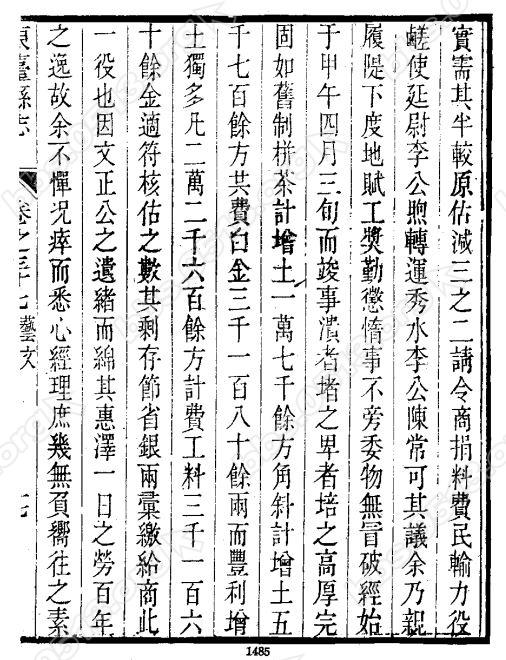 實需其半較原估減三之二請令商捐料費民輸力役
鹺使廷尉李公煦轉運秀水李公陳常可其議余乃親
履隄下度地賦工奬勤懲惰事不旁委物無冒破經始
于甲午四月三旬而竣事潰者堵之卑者培之高厚完
固如舊制栟茶計增土一萬七千餘方角斜計增土五
千七百餘方共費白金三千一百八十餘兩而豐利增
土獨多凡二萬二千六百餘方計費工料三千一百六
十餘金適符核估之數其剩存節省銀兩彚繳給商此
一役也因文正公之遺緒而綿其惠澤一日之勞百年
之逸故余不憚况瘁而悉心經理庶幾無負嚮往之素
東臺縣志 卷之三十七 藝文 七
1485